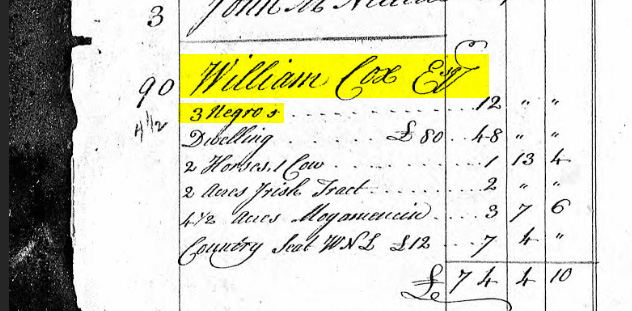 3
90 William Cox Esqr
4 1/2 3 Negros 12 " "
Dwelling £80 48 " "
2 Horses. 1 Cow 1 13 4
2 Acres Irish Tract 2 " "
4 1/2 Acres Moyamencin 3 7 6
Country Seat W N L £12 7 4 "
£ 74 4 10